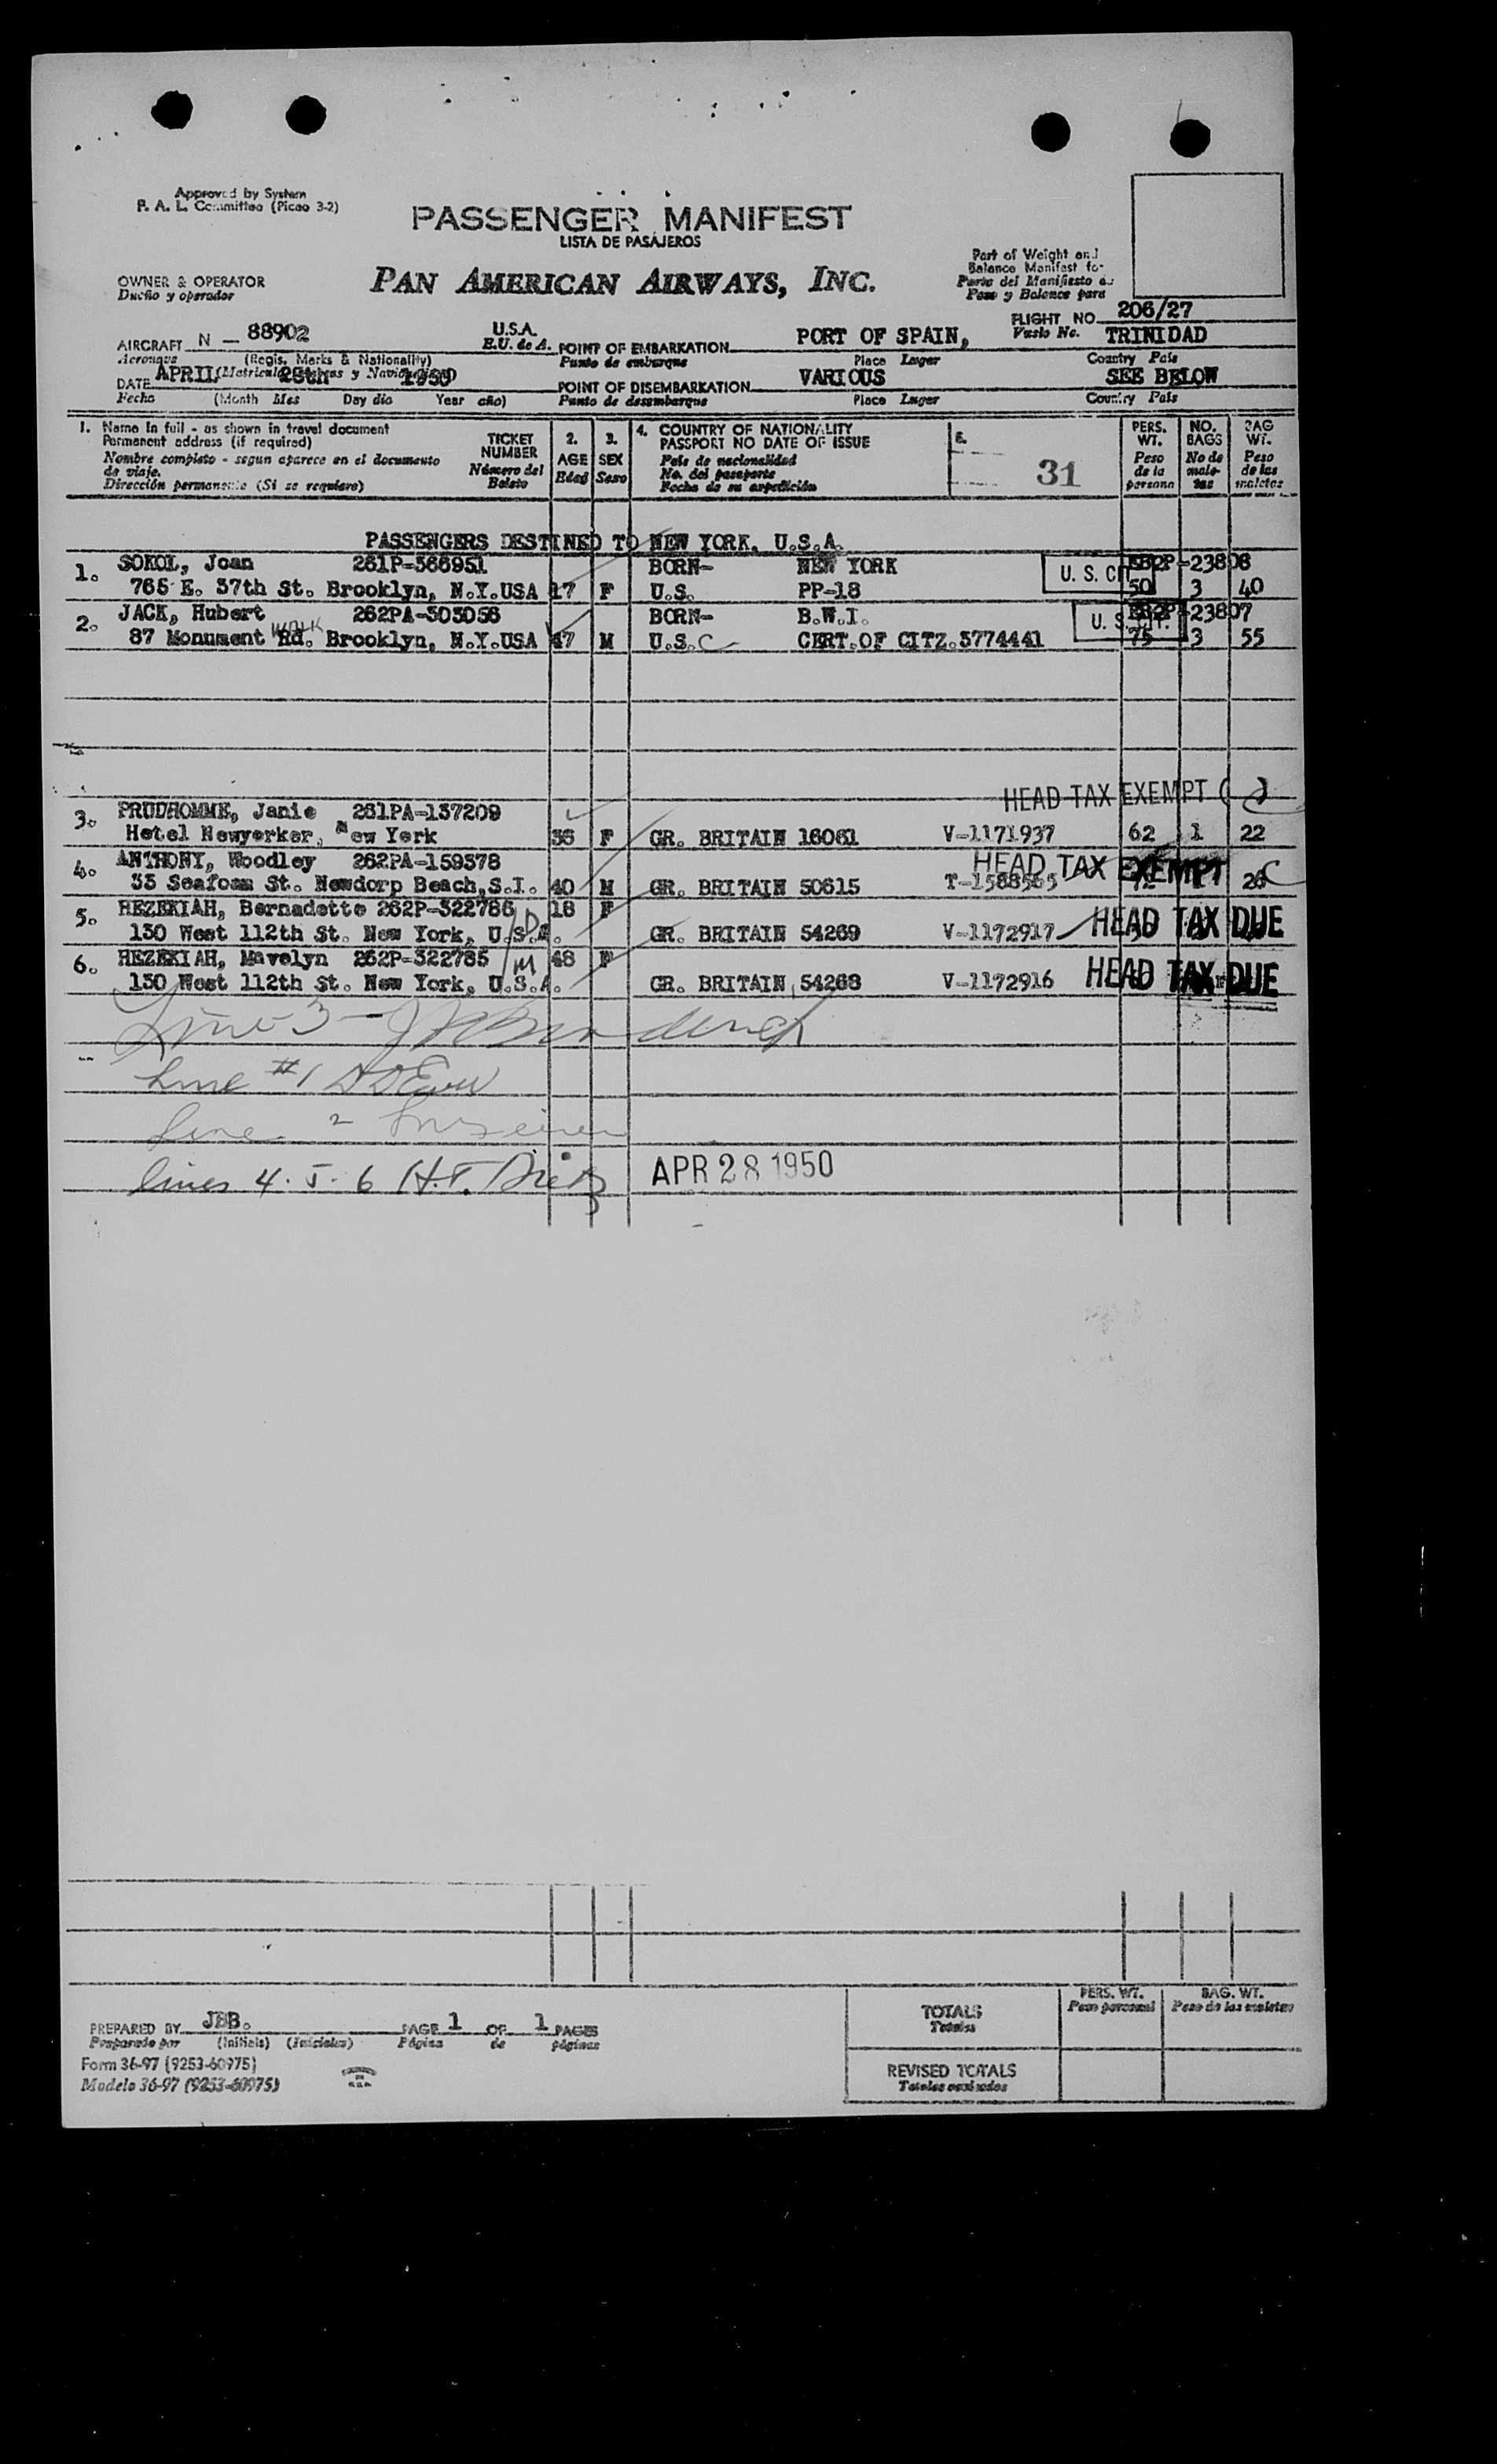 Approved by System
P. A. L. Committee (Picao 3-2)
PASSENGER MANIFEST
LISTA DE PASAJEROS
PAN AMERICAN AIRWAYS, INC.
OWNER & OPERATOR
Dueño y operador
Part of Weight and
Balance Manifest for
Parte del Manifiesto de
Peso y Balance para
FLIGHT NO. 206/27
Vuelo No.
AIRCRAFT N - 88902 U.S.A.
Aeronave (Regis. Marks & Nationality) E.U. de A.
POINT OF EMBARKATION PORT OF SPAIN, TRINIDAD
Punto de embarque Place Lugar Country País
DATE APRIL 28th 1950
Fecha (Month Mes Day día Year año)
POINT OF DISEMBARKATION VARIOUS SEE BELOW
Punto de desembarque Place Lugar Country País
1. Name in full - as shown in travel document
Permanent address (if required)
Nombre completo - segun aparece en el documento
de viaje.
Dirección permanente (Si se requiere)
TICKET
NUMBER
Número del
Boleto
2.
AGE
Edad
3.
SEX
Sexo
4. COUNTRY OF NATIONALITY
PASSPORT NO DATE OF ISSUE
País de nacionalidad
No. del pasaporte
Fecha de su expedición
5.
31
PERS.
WT.
Peso
de la
persona
NO.
BAGS
No de
male-
tas
BAG
WT.
Peso
de las
maletas
PASSENGERS DESTINED TO NEW YORK, U.S.A.
1. SOKOL, Joan 261P-366951 BORN- NEW YORK U. S. CIT. -23808
765 E. 37th St. Brooklyn, N.Y.USA 17 F U.S. PP-18 50 3 40
2. JACK, Hubert 262PA-303056 BORN- B.W.I. U. S. CIT. -23807
87 Monument Rd. WALK Brooklyn, N.Y.USA 47 M U.S.C CERT.OF CITZ.3774441 75 3 55
HEAD TAX EXEMPT ( )
3. PRUDHOMME, Janie 261PA-137209
Hotel Newyorker, New York 36 F GR. BRITAIN 16061 V-1171937 62 1 22
4. ANTHONY, Woodley 262PA-159378 HEAD TAX EXEMPT
33 Seafoam St. Newdorp Beach,S.I. 40 M GR. BRITAIN 50615 T-1588565 26
5. HEZEKIAH, Bernadette 262P-322786 18 F
130 West 112th St. New York, U.S.A. GR. BRITAIN 54269 V-1172917 HEAD TAX DUE
6. HEZEKIAH, Mavelyn 262P-322785 M 48 F
130 West 112th St. New York, U.S.A. GR. BRITAIN 54268 V-1172916 HEAD TAX DUE
Line 3 -
Line #1
Line 2
lines 4. 5. 6 H.T. APR 28 1950
PREPARED BY JBB. PAGE 1 OF 1 PAGES
Preparado por (Initials) (Iniciales) Página de páginas
Form 36-97 (9253-60975)
Modelo 36-97 (9253-60975)
PERS. WT.
Peso personal
BAG. WT.
Peso de las maletas
TOTALS
Totales
REVISED TOTALS
Totales revisados